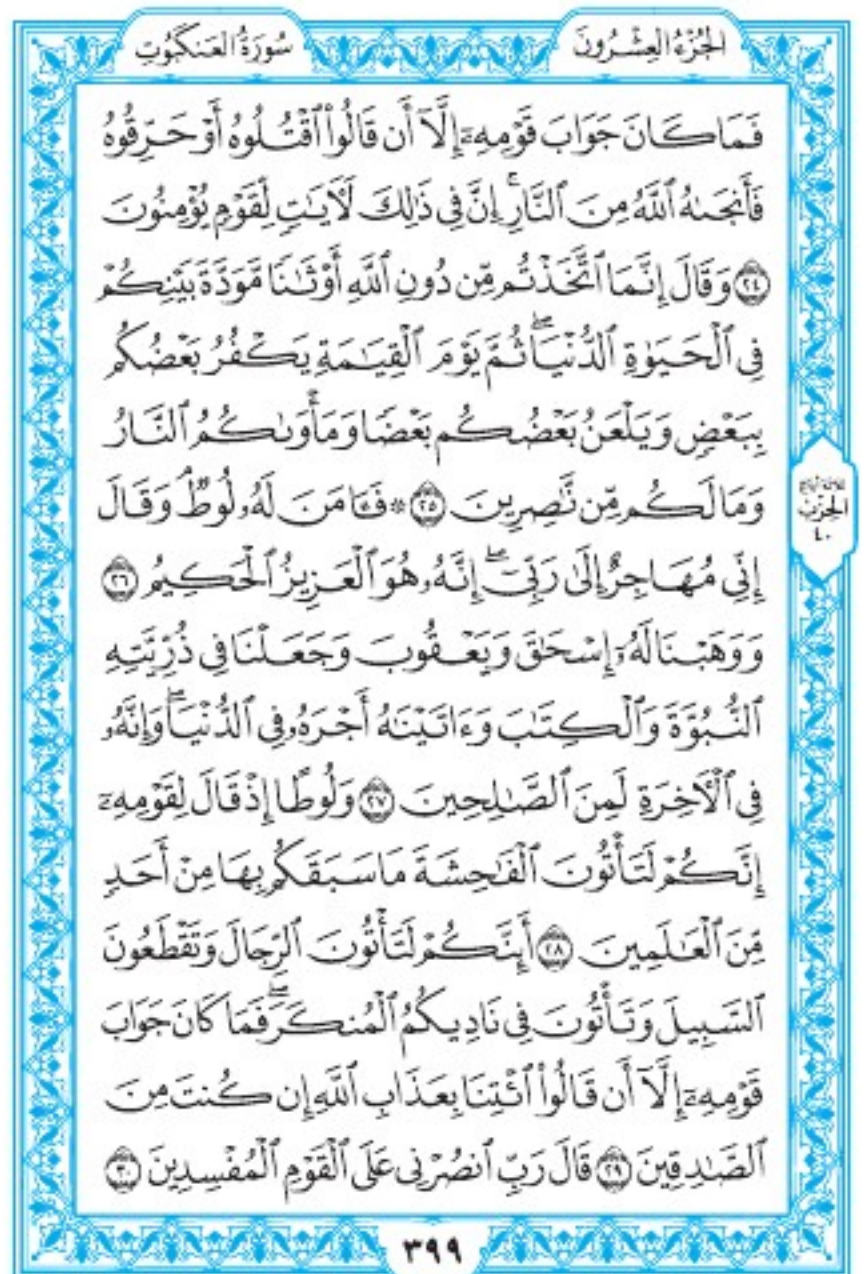 الجُزْءُ العِشْرُونَ
سُورَةُ العَنكَبُوتِ
فَمَا كَانَ جَوَابَ قَوْمِهِۦٓ إِلَّآ أَن قَالُوا۟ ٱقْتُلُوهُ أَوْ حَرِّقُوهُ
فَأَنجَىٰهُ ٱللَّهُ مِنَ ٱلنَّارِۚ إِنَّ فِى ذَٰلِكَ لَـَٔايَـٰتٍ لِّقَوْمٍ يُؤْمِنُونَ
٢٤ وَقَالَ إِنَّمَا ٱتَّخَذْتُم مِّن دُونِ ٱللَّهِ أَوْثَـٰنًا مَّوَدَّةَ بَيْنِكُمْ
فِى ٱلْحَيَوٰةِ ٱلدُّنْيَاۖ ثُمَّ يَوْمَ ٱلْقِيَـٰمَةِ يَكْفُرُ بَعْضُكُم
بِبَعْضٍ وَيَلْعَنُ بَعْضُكُم بَعْضًا وَمَأْوَىٰكُمُ ٱلنَّارُ
وَمَا لَكُم مِّن نَّـٰصِرِينَ ٢٥ ۞ فَـَٔامَنَ لَهُۥ لُوطٌۘ وَقَالَ
إِنِّى مُهَاجِرٌ إِلَىٰ رَبِّىٓۖ إِنَّهُۥ هُوَ ٱلْعَزِيزُ ٱلْحَكِيمُ ٢٦
وَوَهَبْنَا لَهُۥٓ إِسْحَـٰقَ وَيَعْقُوبَ وَجَعَلْنَا فِى ذُرِّيَّتِهِ
ٱلنُّبُوَّةَ وَٱلْكِتَـٰبَ وَءَاتَيْنَـٰهُ أَجْرَهُۥ فِى ٱلدُّنْيَاۖ وَإِنَّهُۥ
فِى ٱلْـَٔاخِرَةِ لَمِنَ ٱلصَّـٰلِحِينَ ٢٧ وَلُوطًا إِذْ قَالَ لِقَوْمِهِۦٓ
إِنَّكُمْ لَتَأْتُونَ ٱلْفَـٰحِشَةَ مَا سَبَقَكُم بِهَا مِنْ أَحَدٍ
مِّنَ ٱلْعَـٰلَمِينَ ٢٨ أَئِنَّكُمْ لَتَأْتُونَ ٱلرِّجَالَ وَتَقْطَعُونَ
ٱلسَّبِيلَ وَتَأْتُونَ فِى نَادِيكُمُ ٱلْمُنكَرَۖ فَمَا كَانَ جَوَابَ
قَوْمِهِۦٓ إِلَّآ أَن قَالُوا۟ ٱئْتِنَا بِعَذَابِ ٱللَّهِ إِن كُنتَ مِنَ
ٱلصَّـٰدِقِينَ ٢٩ قَالَ رَبِّ ٱنصُرْنِى عَلَى ٱلْقَوْمِ ٱلْمُفْسِدِينَ ٣٠
ثلاثة أرباع
الحِزْبُ
٤٠
٣٩٩